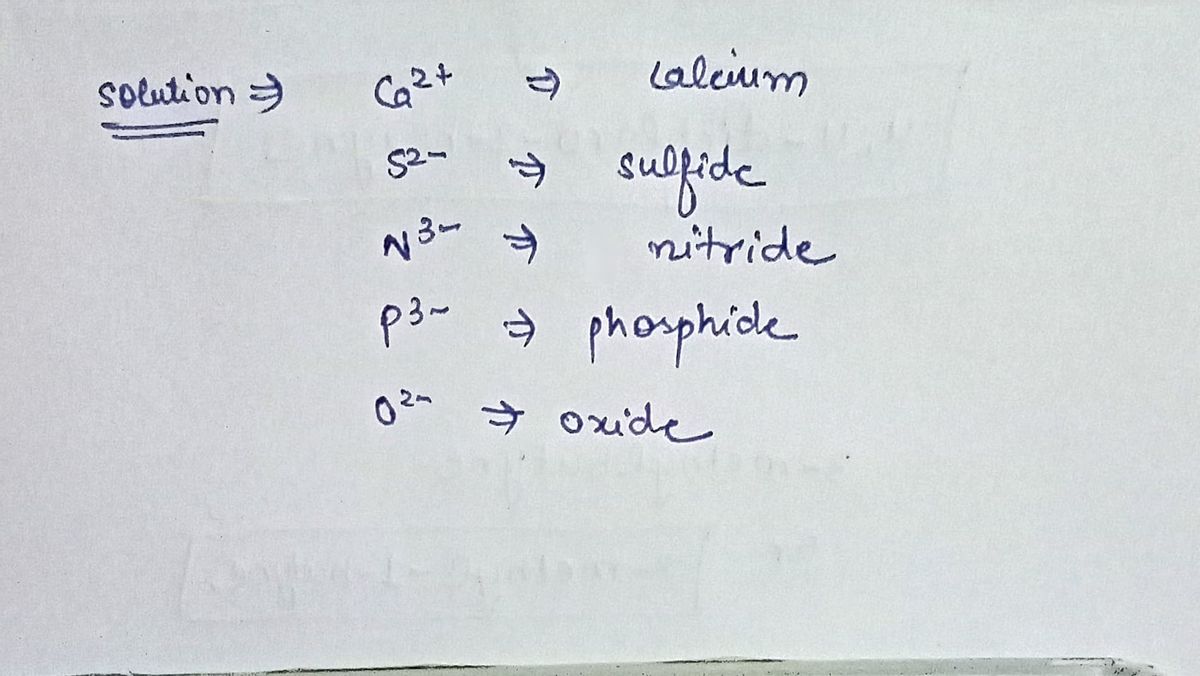 solution ⇒ Ca²⁺ ⇒ calcium
S²⁻ ⇒ sulfide
N³⁻ ⇒ nitride
P³⁻ ⇒ phosphide
O²⁻ ⇒ oxide